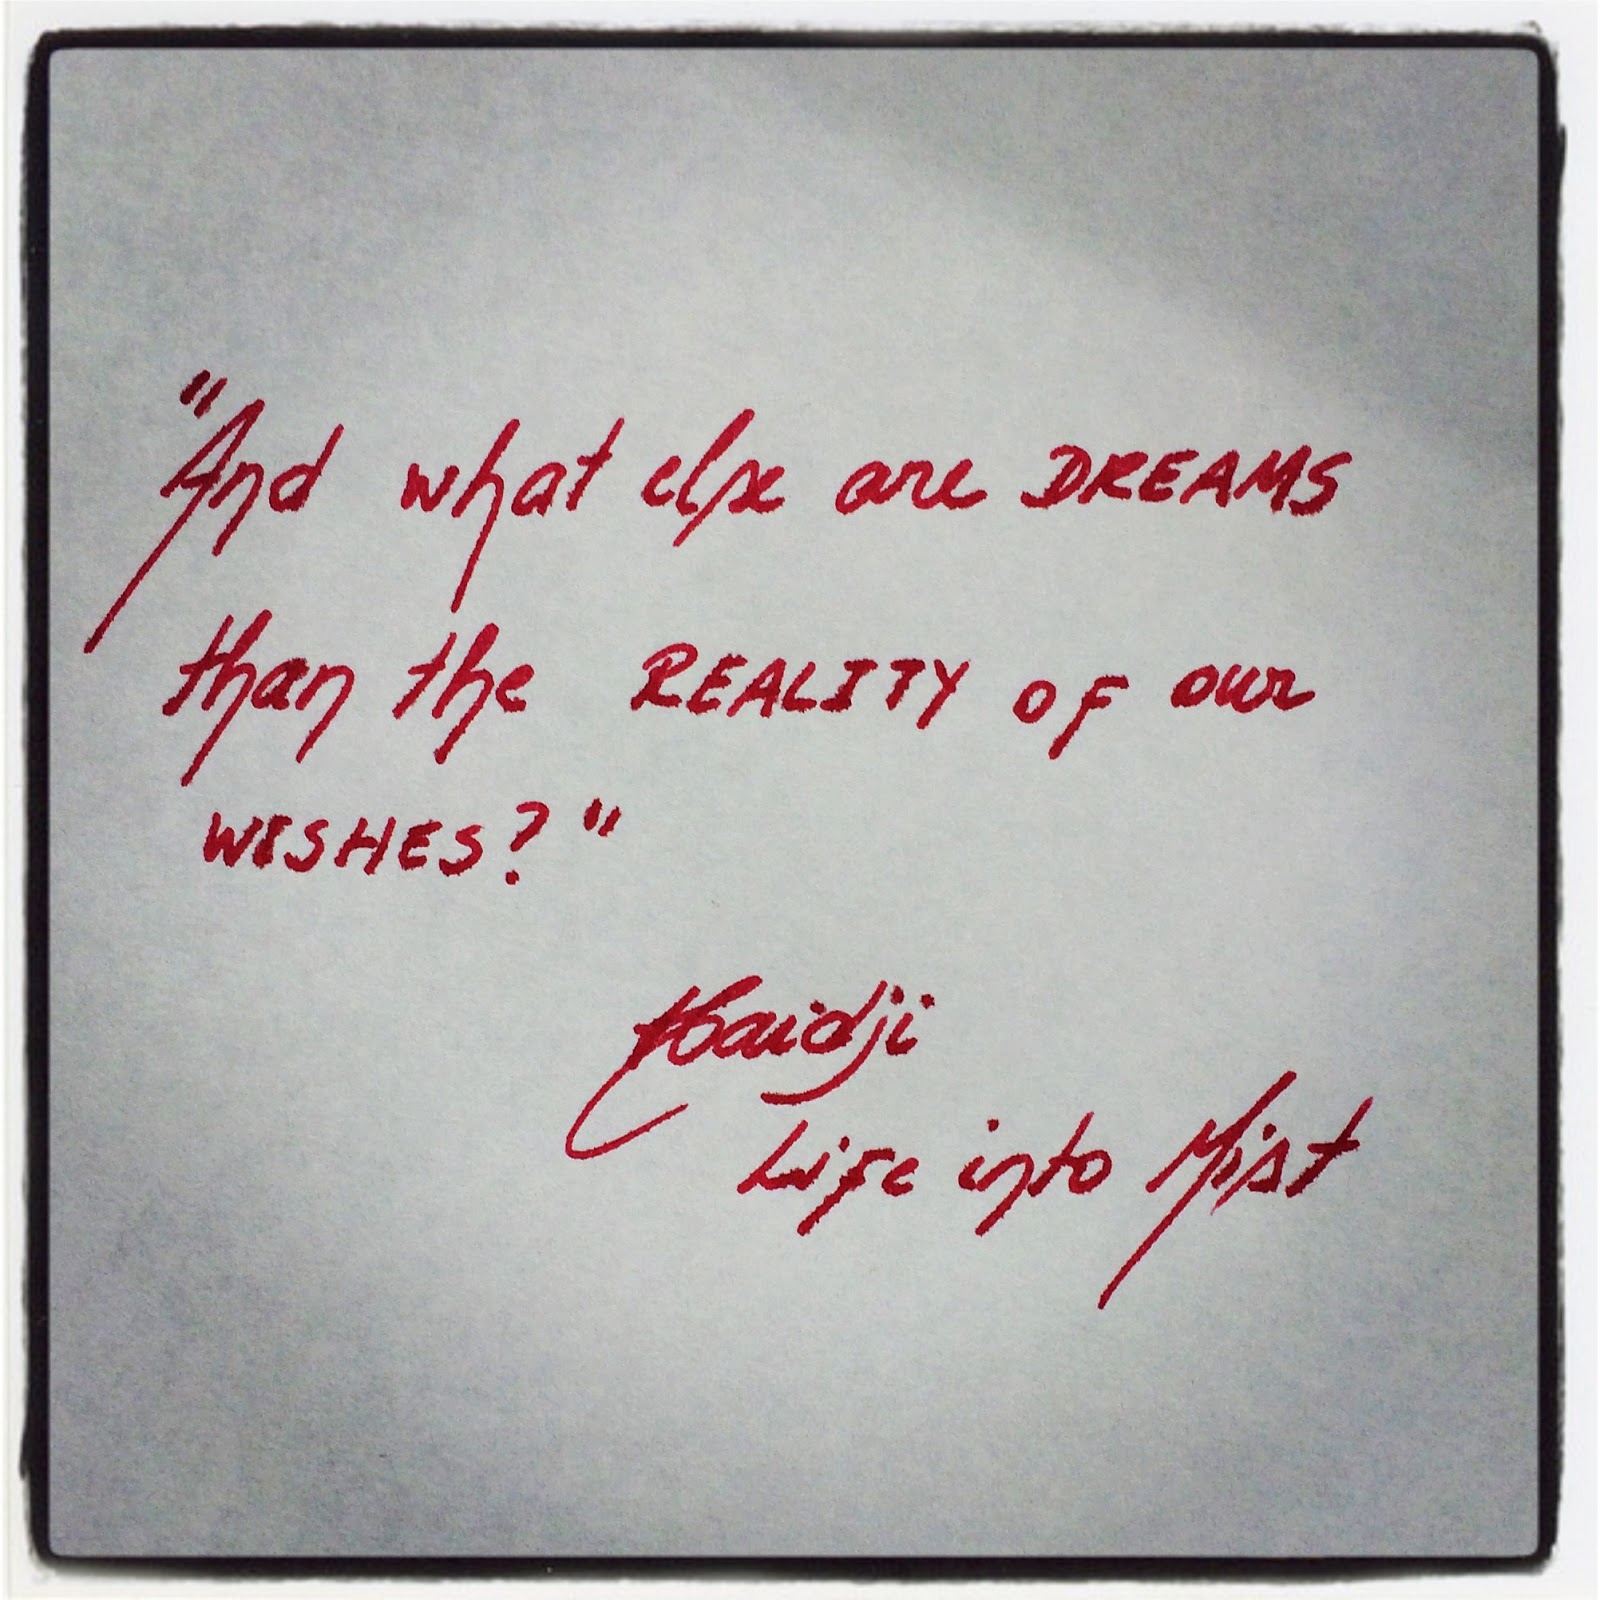 "And what else are DREAMS
than the REALITY OF our
WISHES?"
Haidji
Life into Mist